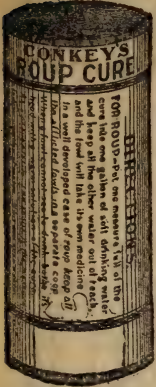 CONKEY'S
ROUP CURE
DIRECTIONS
FOR ROUP-Put one measure full of the
cure into one gallon of soft drinking water
and keep all the other water out of reach,
and the fowl will take its own medicine
In a well developed case of roup keep all
the afflicted fowls in a separate coop